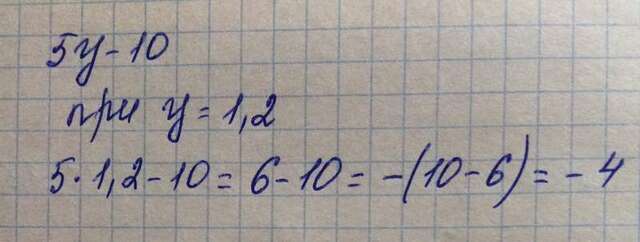 5y-10
при y=1,2
5·1,2-10=6-10=-(10-6)=-4